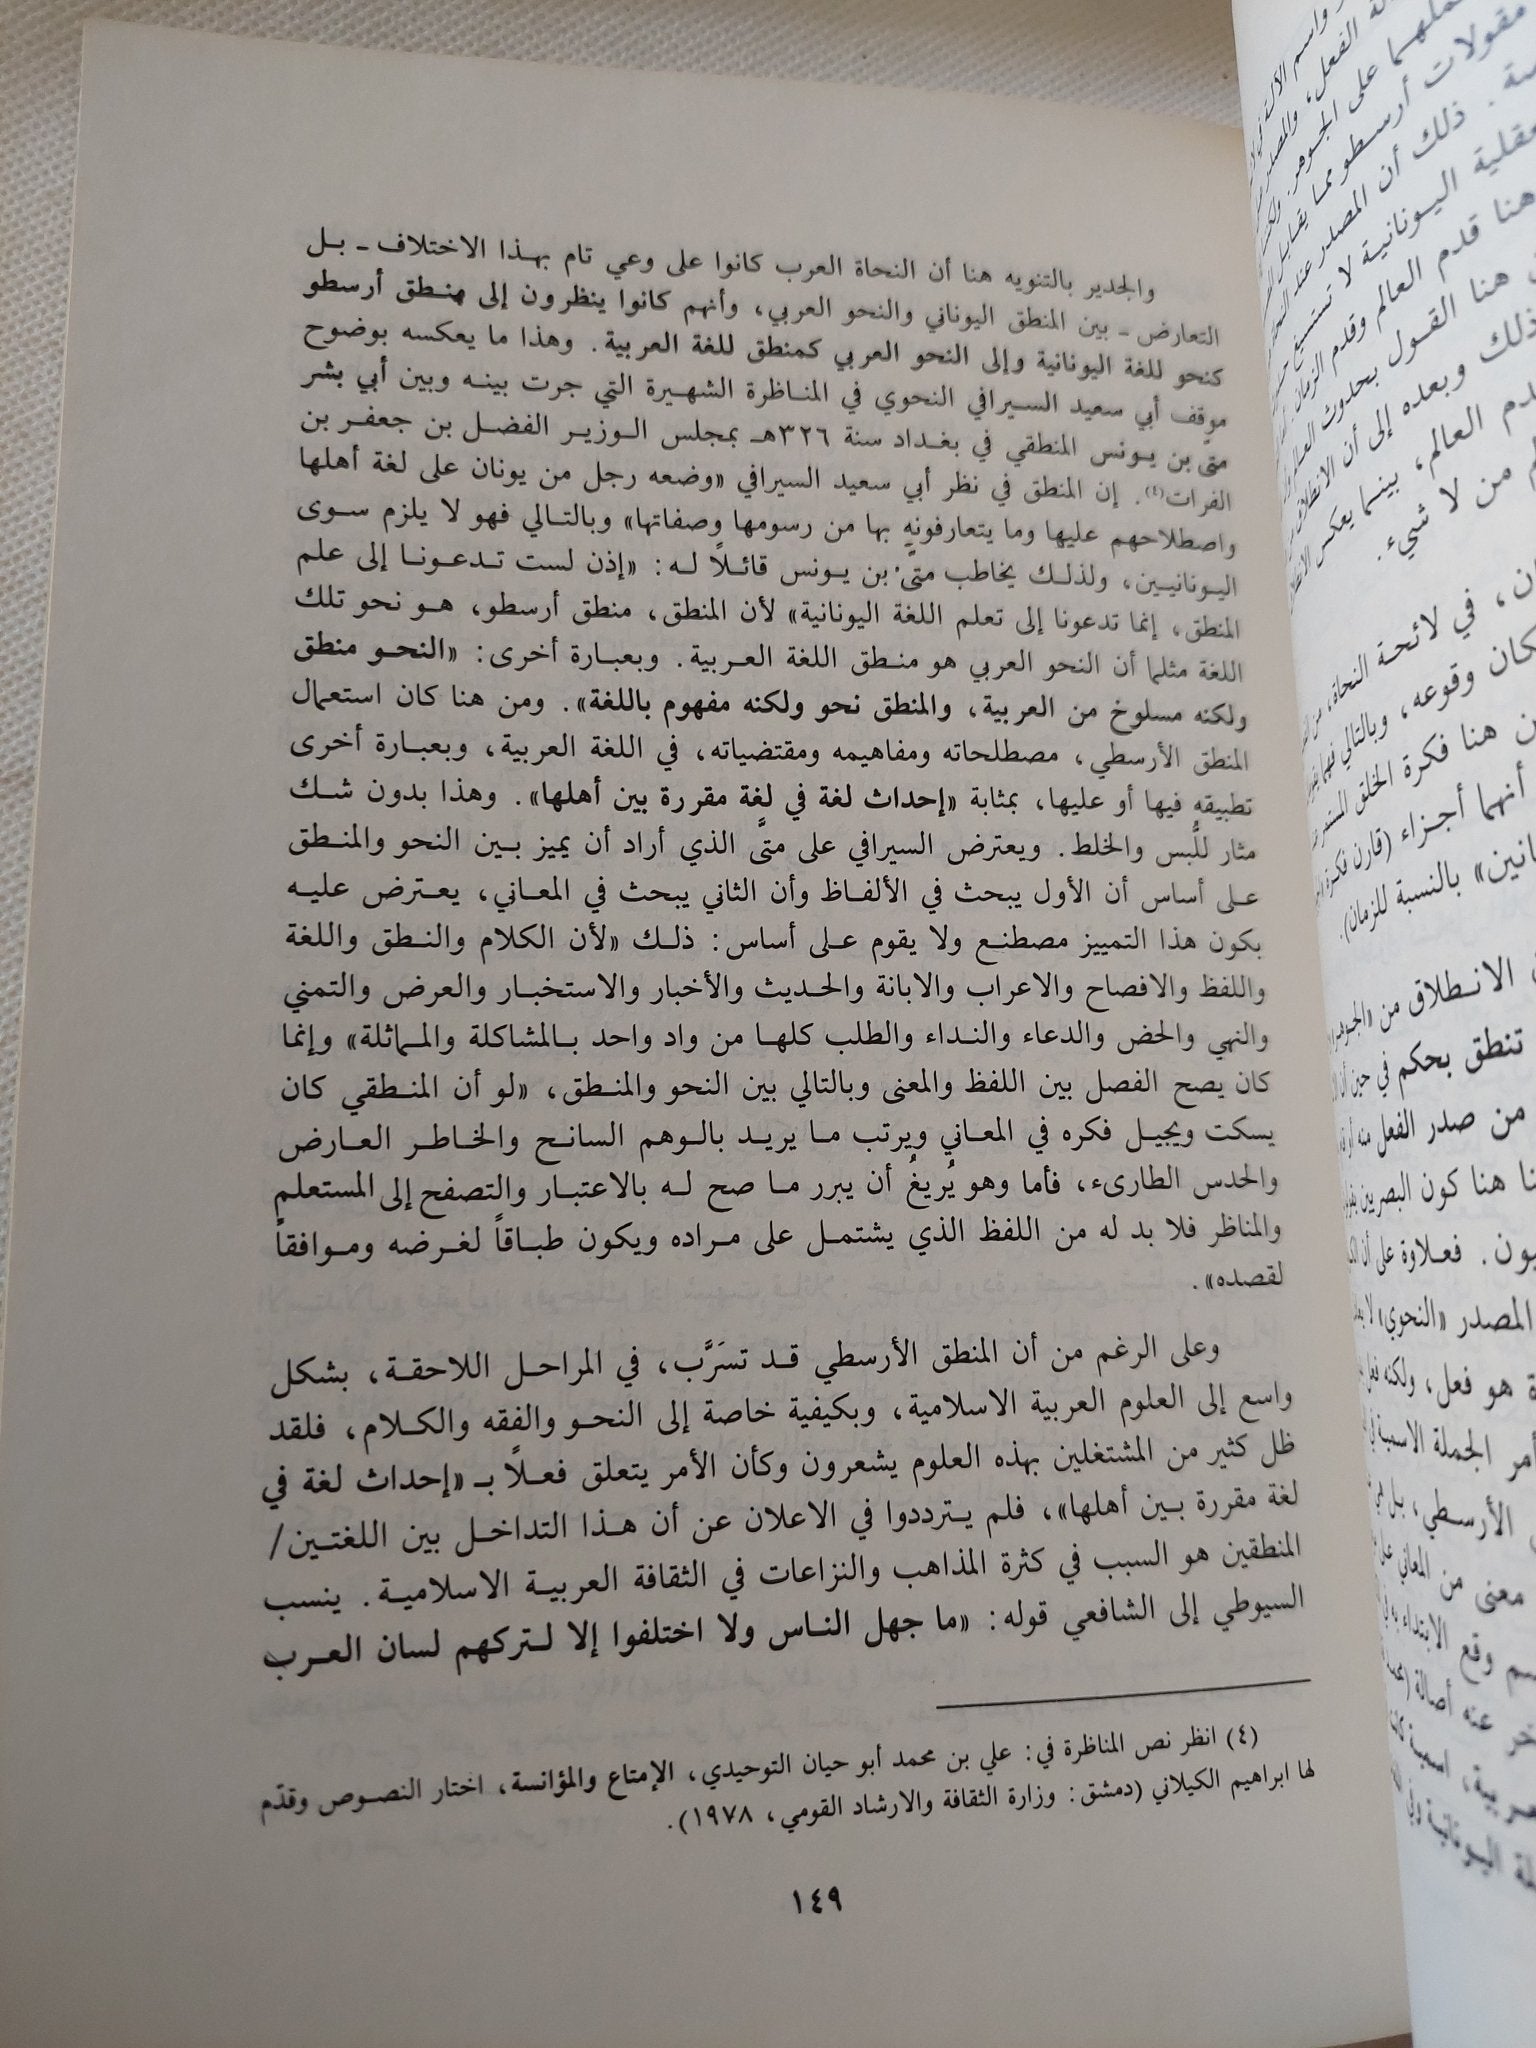 والجدير بالتنويه هنا أن النحاة العرب كانوا على وعي تام بهذا الاختلاف ـ بل
التعارض ـ بين المنطق اليوناني والنحو العربي، وأنهم كانوا ينظرون إلى منطق أرسطو
كنحو للغة اليونانية وإلى النحو العربي كمنطق للغة العربية. وهذا ما يعكسه بوضوح
موقف أبي سعيد السيرافي النحوي في المناظرة الشهيرة التي جرت بينه وبين أبي بشر
متى بن يونس المنطقي في بغداد سنة ٣٢٦هـ بمجلس الوزير الفضل بن جعفر بن
الفرات(٤). إن المنطق في نظر أبي سعيد السيرافي «وضعه رجل من يونان على لغة أهلها
واصطلاحهم عليها وما يتعارفونه بها من رسومها وصفاتها» وبالتالي فهو لا يلزم سوى
اليونانيين، ولذلك يخاطب متَّى بن يونس قائلاً له: «إذن لست تدعونا إلى علم
المنطق، إنما تدعونا إلى تعلم اللغة اليونانية» لأن المنطق، منطق أرسطو، هو نحو تلك
اللغة مثلما أن النحو العربي هو منطق اللغة العربية. وبعبارة أخرى: «النحو منطق
ولكنه مسلوخ من العربية، والمنطق نحو ولكنه مفهوم باللغة». ومن هنا كان استعمال
المنطق الأرسطي، مصطلحاته ومفاهيمه ومقتضياته، في اللغة العربية، وبعبارة أخرى
تطبيقه فيها أو عليها، بمثابة «إحداث لغة في لغة مقررة بين أهلها». وهذا بدون شك
مثار للُّبس والخلط. ويعترض السيرافي على متَّى الذي أراد أن يميز بين النحو والمنطق
على أساس أن الأول يبحث في الألفاظ وأن الثاني يبحث في المعاني، يعترض عليه
بكون هذا التمييز مصطنع ولا يقوم على أساس: ذلك «لأن الكلام والنطق واللغة
واللفظ والافصاح والاعراب والابانة والحديث والأخبار والاستخبار والعرض والتمني
والنهي والحض والدعاء والنداء والطلب كلها من واد واحد بالمشاكلة والمماثلة» وإنما
كان يصح الفصل بين اللفظ والمعنى وبالتالي بين النحو والمنطق، «لو أن المنطقي كان
يسكت ويجيل فكره في المعاني ويرتب ما يريد بالوهم السانح والخاطر العارض
والحدس الطارىء، فأما وهو يُريغُ أن يبرر ما صح له بالاعتبار والتصفح إلى المستعلم
والمناظر فلا بد له من اللفظ الذي يشتمل على مراده ويكون طباقاً لغرضه وموافقاً
لقصده».
وعلى الرغم من أن المنطق الأرسطي قد تسَرَّب، في المراحل اللاحقة، بشكل
واسع إلى العلوم العربية الاسلامية، وبكيفية خاصة إلى النحو والفقه والكلام، فلقد
ظل كثير من المشتغلين بهذه العلوم يشعرون وكأن الأمر يتعلق فعلاً بـ «إحداث لغة في
لغة مقررة بين أهلها»، فلم يترددوا في الاعلان عن أن هذا التداخل بين اللغتين/
المنطقين هو السبب في كثرة المذاهب والنزاعات في الثقافة العربية الاسلامية. ينسب
السيوطي إلى الشافعي قوله: «ما جهل الناس ولا اختلفوا إلا لتركهم لسان العرب
(٤) انظر نص المناظرة في: علي بن محمد أبو حيان التوحيدي، الإمتاع والمؤانسة، اختار النصوص وقدّم
لها ابراهيم الكيلاني (دمشق: وزارة الثقافة والارشاد القومي، ١٩٧٨).
١٤٩